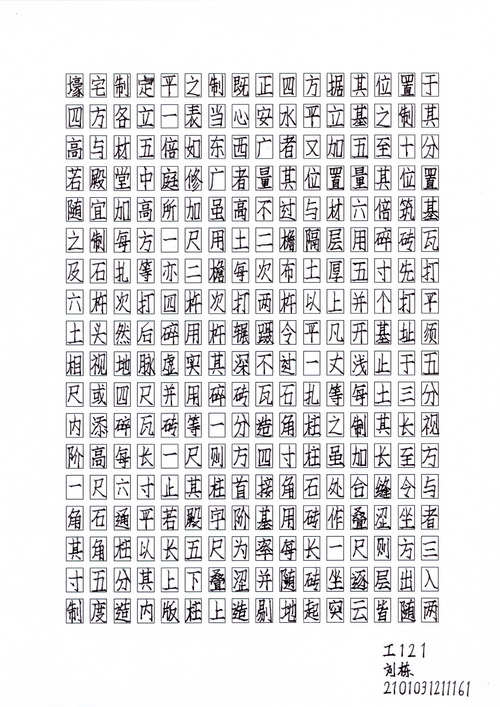 壕宅制定平之制既正四方据其位置于
四方各立一表当心安水平立基之制其
高与材五倍如东西广者又加五至十分
若殿堂中庭修广者量其位置量其位置
随宜加高所加虽高不过与材六倍筑基
之制每方一尺用土二檐隔层用碎砖瓦
及石扎等亦二檐每次布土厚五寸先打
六杵次打四杵次打两杵以上并个打平
土头然后碎用杵辗蹑令平凡开基址须
相视地脉虚实其深不过一丈浅止于五
尺或四尺并用碎砖瓦石扎等每土三分
内添碎瓦砖等一分造角柱之制其长视
阶高每长一尺则方四寸柱虽加长至方
一尺六寸止其柱首接角石处合缝令与
角石通平若殿宇阶基用砖作叠涩坐者
其角柱以长五尺为率每长一尺则方三
寸五分其上下叠涩并随砖坐逐层出入
制度造内版柱上造剔地起突云皆随两
工121
刘栋
2101031211161